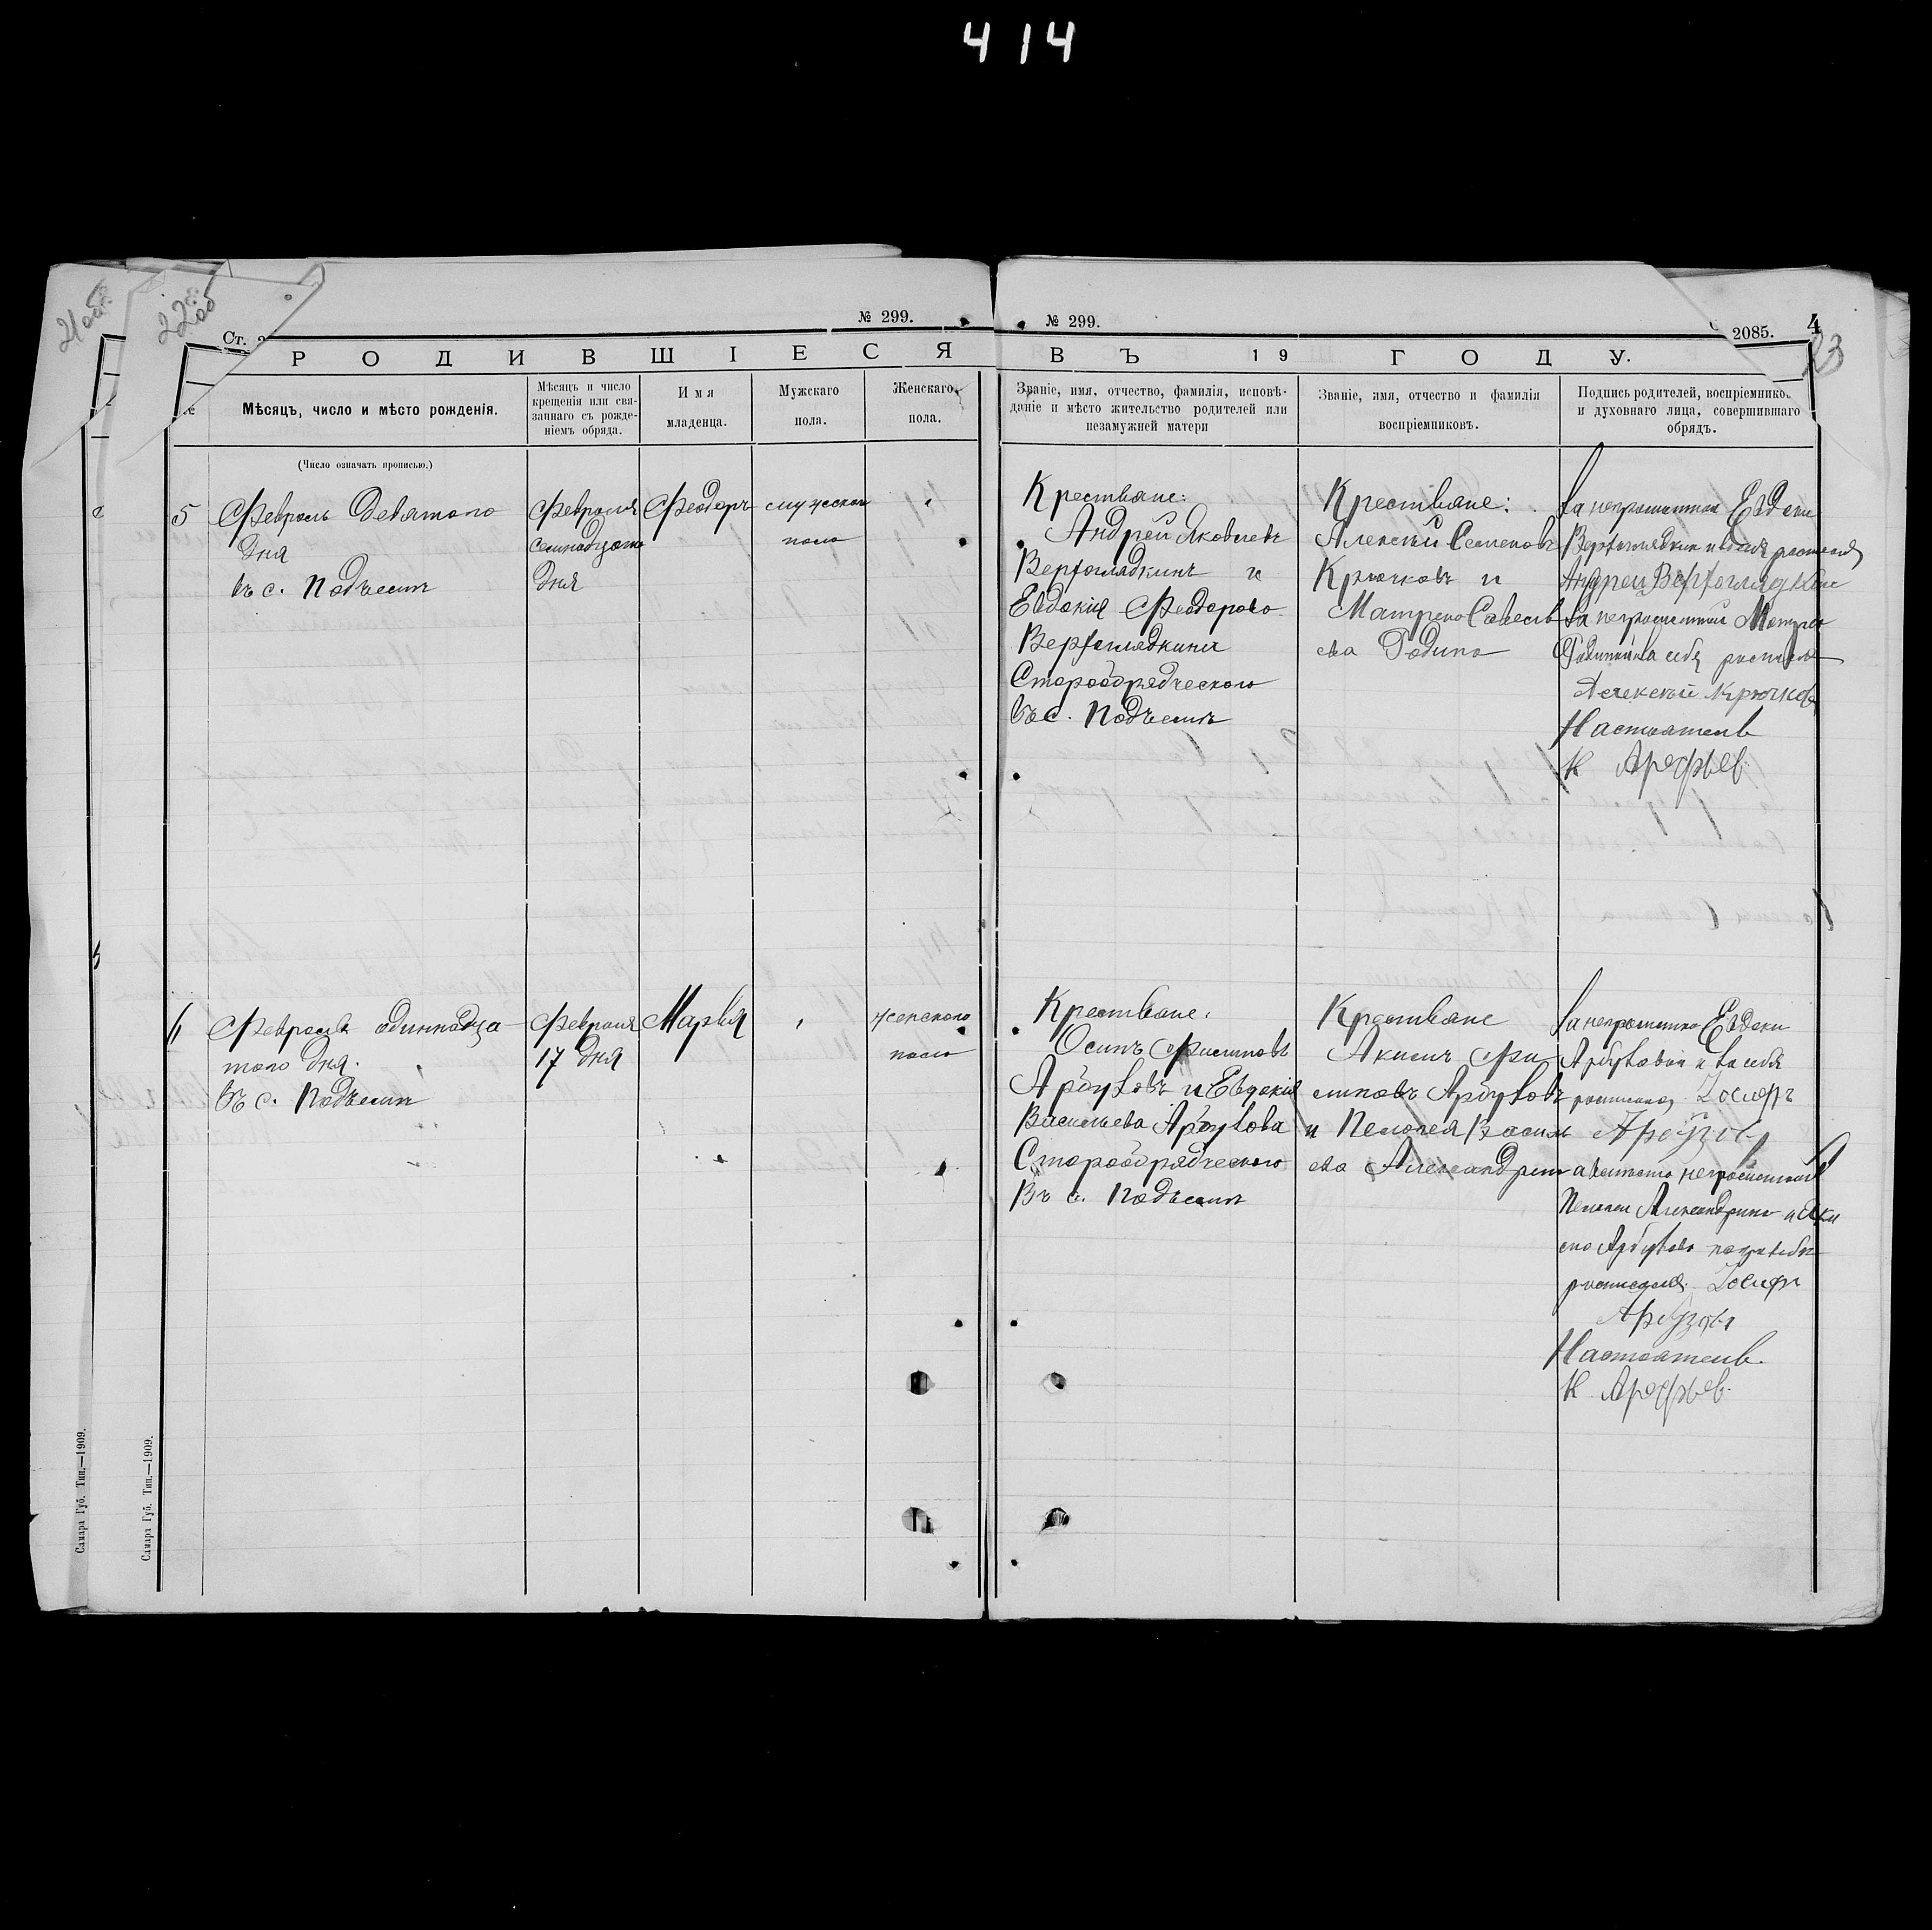 414
21 об.
22 об
23
4
Ст. 2
№ 299.
№ 299.
2085.
РОДИВШІЕСЯ
ВЪ 19 ГОДУ.
Мѣсяцъ, число и мѣсто рожденія.
Мѣсяцъ и число
крещенія или свя-
заннаго съ рожде-
ніемъ обряда.
Имя
младенца.
Мужскаго
пола.
Женскаго
пола.
Званіе, имя, отчество, фамилія, исповѣ-
даніе и мѣсто жительство родителей или
незамужней матери
Званіе, имя, отчество и фамилія
воспріемниковъ.
Подпись родителей, воспріемников
и духовнаго лица, совершившаго
обрядъ.
(Число означать прописью.)
5
Февраль девятого
дня
въ с. Подъемъ
Февраля
семнадцато
дня
Феодоръ
мужскои
поло
Крестьяне:
Андрей Яковлевъ
Верхоглядкинъ и
Евдокія Феодорово
Верхоглядкины
Старообрядческого
въ с. Подъемъ
Крестьяне:
Алексѣй Семеновъ
Крючковъ и
Матрено Савель
ева Родино
За неграмотной Евдоки
Андреи Верхоглядкин
За неграмотной Матрен
Алексѣй Крючковъ
Настоятель
К Арефьев
6
Февраль одиннадца
того дня.
Въ с. Подъемъ
Февраля
17 дня
Марья
женского
поло
Крестьяне.
Осипъ Филиповъ
Арбузовъ и Евдокія
Васильева Арбузова
Старообрядческого
Въ с. Подъемъ
Крестьяне
Акимъ Фи
липовъ Арбузовъ
и Пелогея Василь
ева Александрин
За неграмотно Евдоки
Арбузовой и за себя
Іосифъ
Арбузов
неграмотной
Пелогеи Александрино и Аки
мо Арбузово
Іосифъ
Арбузовъ
Настоятель.
К Арефьев.
Самара Губ. Тип.—1909.
Самара Губ. Тип.—1909.